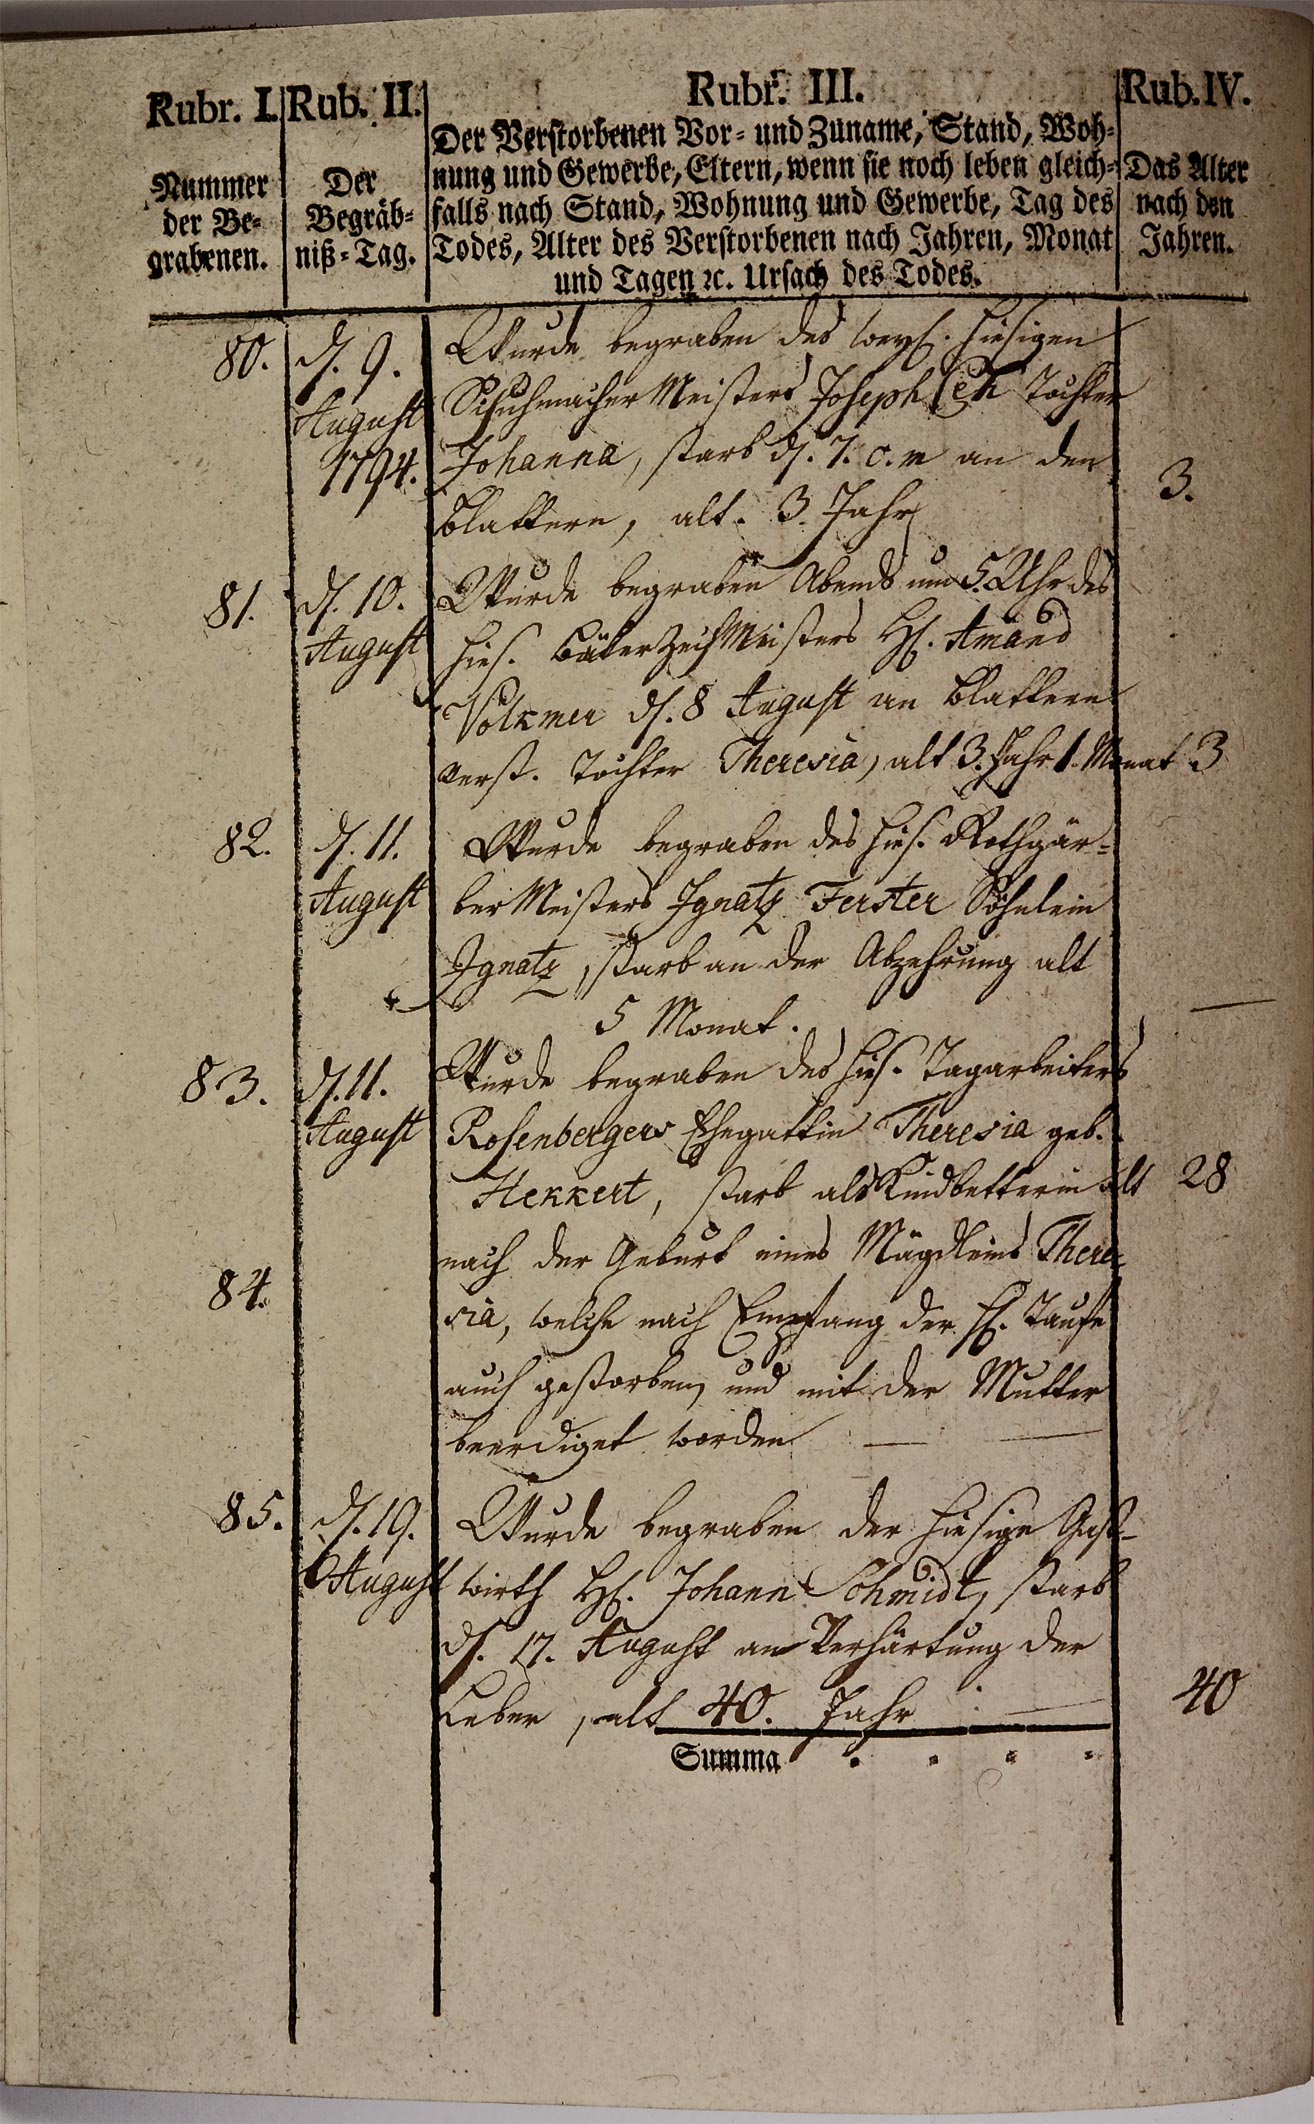 Rubr. I. Rub. II. Rubr. III. Rub. IV.
Nummer
der Be-
grabenen.
Der
Begräb-
niß-Tag.
Der Verstorbenen Vor- und Zuname, Stand, Woh-
nung und Gewerbe, Eltern, wenn sie noch leben gleich-
falls nach Stand, Wohnung und Gewerbe, Tag des
Todes, Alter des Verstorbenen nach Jahren, Monat
und Tagen ꝛc. Ursach des Todes.
Das Alter
nach den
Jahren.
80. d. 9.
August
1794.
Wurde begraben des weyl. hiesigen
Schuhmacher Meisters Joseph Tochter
Johanna, starb d. 7. c. m an den
Blattern, alt. 3 Jahr
3.
81. d. 10.
August
Wurde begraben Abends um 5. Uhr des
hies. Bäker Zech Meisters H. Amand
Volkmer d. 8 August an Blattern
verst. Tochter Theresia, alt 3. Jahr 1. Monat 3
82. d. 11.
August
Wurde begraben des hies. Rothgär-
ber Meisters Ignatz Ferster Söhnlein
Ignatz, starb an der Abzehrung alt
5 Monat. —
83. d. 11.
August
Wurde begraben des hies. Tagarbeiters
Rosenbergers Ehegattin Theresia geb.
Hekkert, starb als Kindbetterin alt 28
nach der Geburt eines Mägdleins There-
84.
sia, welche nach Empfang der H. Taufe
auch gestorben, und mit der Mutter
beerdiget worden — —
85. d. 19.
August
Wurde begraben der hiesige Gast-
wirth H. Johann Schmidt, starb
d. 17. August an Verhärtung der
Leber, alt 40. Jahr — 40
Summa